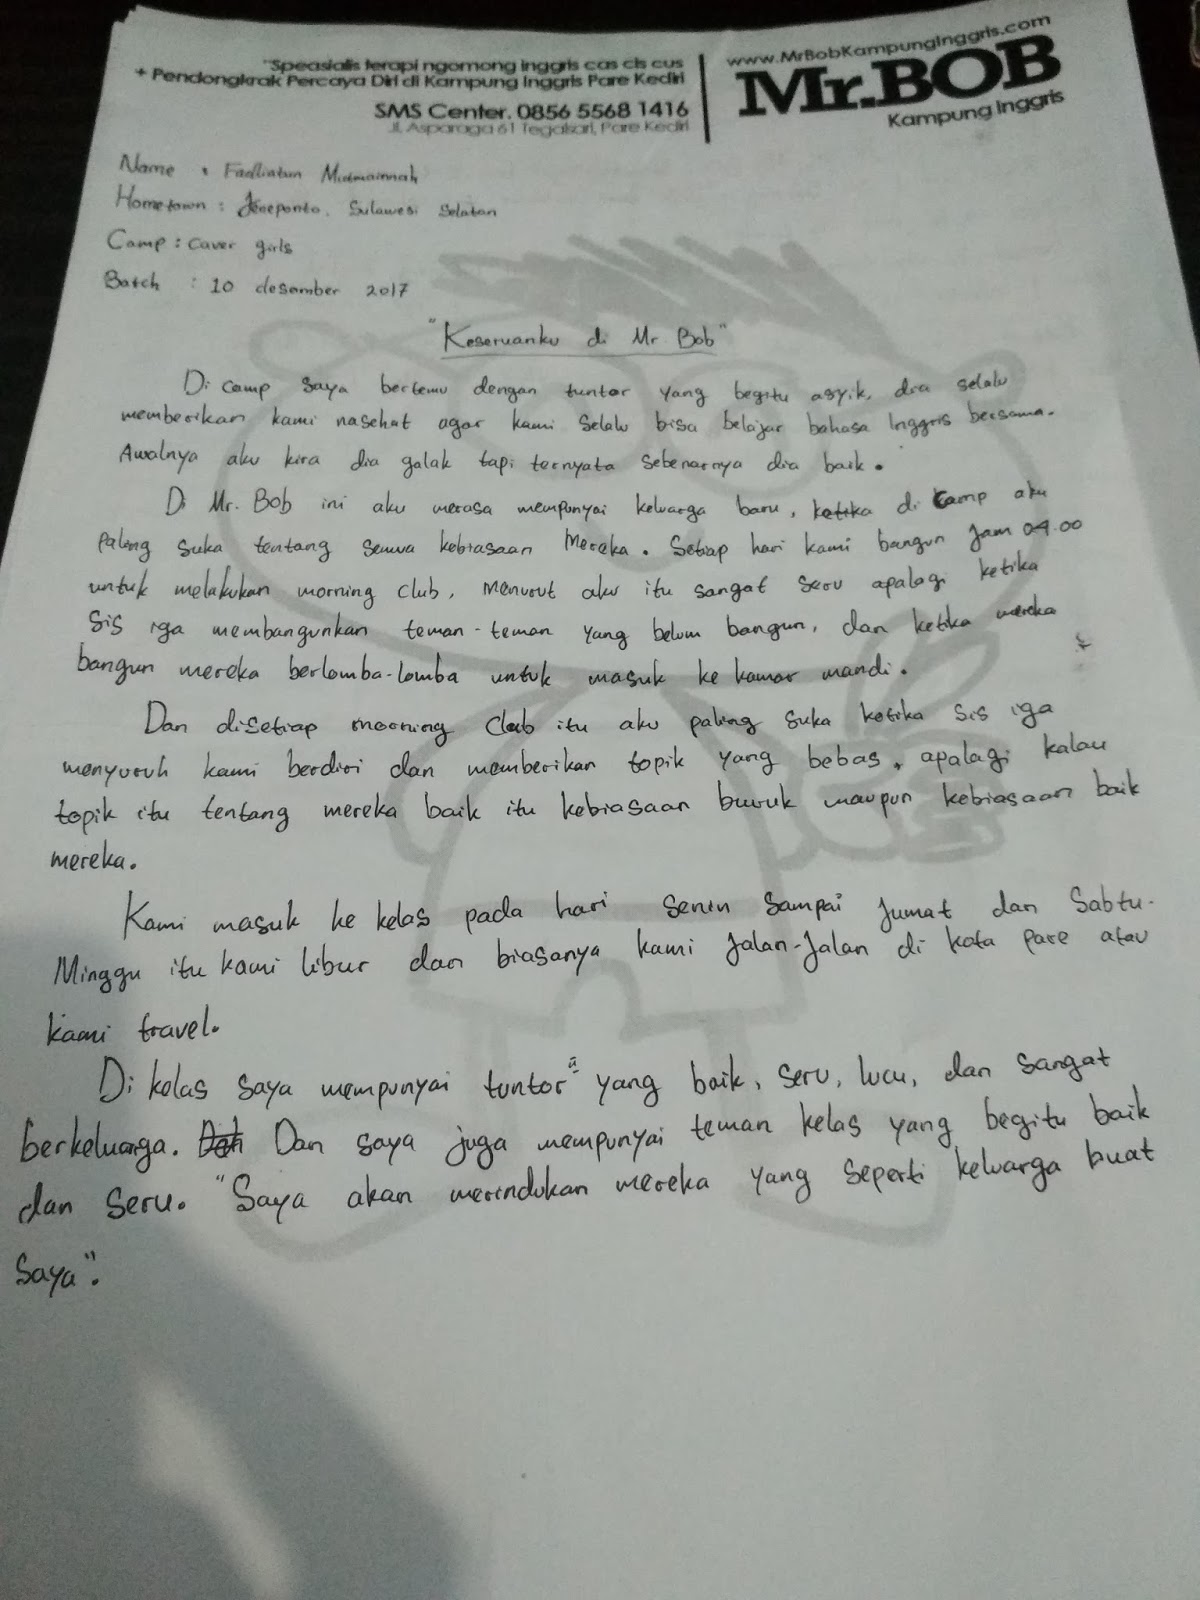 "Speasialis terapi ngomong inggris cas cis cus
+ Pendongkrak Percaya Diri di Kampung Inggris Pare Kediri
SMS Center. 0856 5568 1416
Jl. Asparaga 61 Tegalsari, Pare Kediri
www.MrBobKampungInggris.com
Mr.BOB
Kampung Inggris
Name : Fadliatun Mutmainnah
Hometown : Jeneponto, Sulawesi Selatan
Camp : Caver girls
Batch : 10 desember 2017
"Keseruanku di Mr. Bob"
Di camp saya bertemu dengan tuntor yang begitu asyik, dia selalu
memberikan kami nasehat agar kami selalu bisa belajar bahasa Inggris bersama.
Awalnya aku kira dia galak tapi ternyata sebenarnya dia baik.
Di Mr. Bob ini aku merasa mempunyai keluarga baru, ketika di Camp aku
paling suka tentang semua kebiasaan Mereka. Setiap hari kami bangun Jam 04.00
untuk melakukan morning club, menurut aku itu sangat seru apalagi ketika
Sis iga membangunkan teman-teman yang belum bangun, dan ketika mereka
bangun mereka berlomba-lomba untuk masuk ke kamar mandi.
Dan disetiap morning Club itu aku paling suka ketika sis iga
menyuruh kami berdiri dan memberikan topik yang bebas, apalagi kalau
topik itu tentang mereka baik itu kebiasaan buruk maupun kebiasaan baik
mereka.
Kami masuk ke kelas pada hari senin sampai Jumat dan Sabtu-
Minggu itu kami libur dan biasanya kami Jalan-Jalan di kota pare atau
kami travel.
Di kelas saya mempunyai tuntor" yang baik, seru, lucu, dan sangat
berkeluarga. Dan saya juga mempunyai teman kelas yang begitu baik
dan seru. "Saya akan merindukan mereka yang seperti keluarga buat
saya".